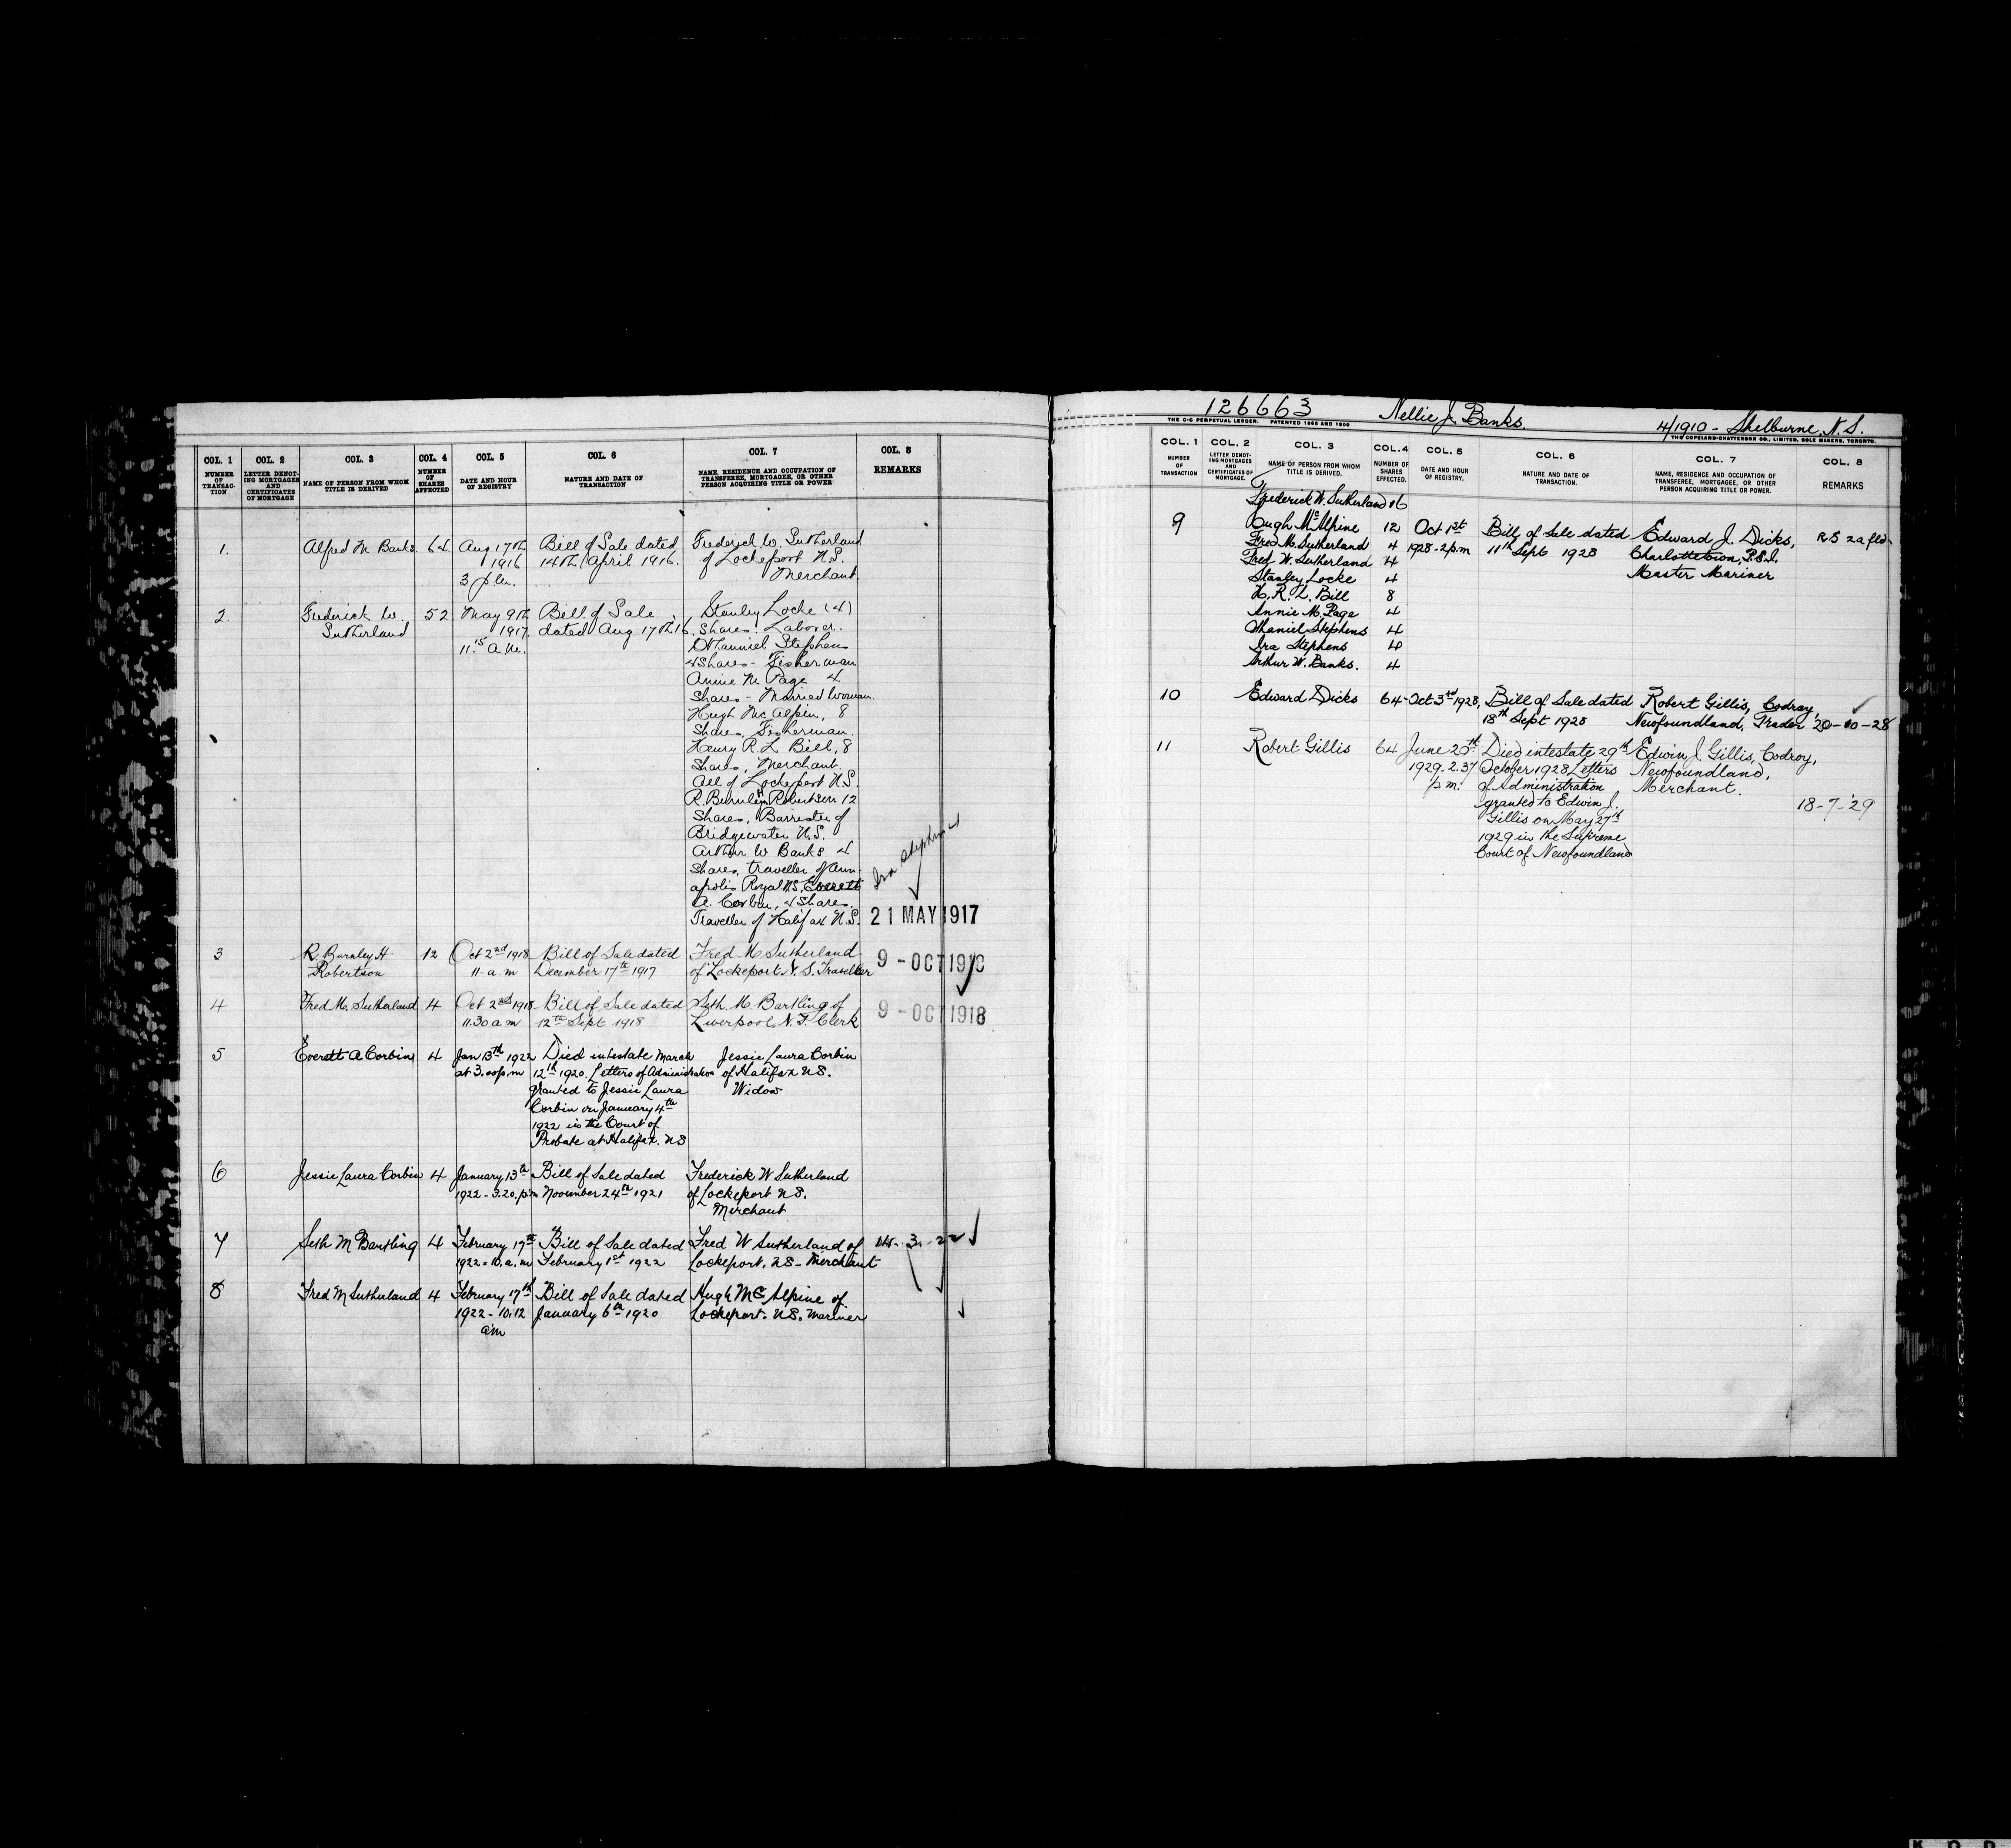 COL. 1 COL. 2 COL. 3 COL. 4 COL. 5 COL. 6 COL. 7 COL. 8
NUMBER OF TRANSAC-TION
LETTER DENOT-ING MORTGAGES AND CERTIFICATES OF MORTGAGE
NAME OF PERSON FROM WHOM TITLE IS DERIVED
NUMBER OF SHARES AFFECTED
DATE AND HOUR OF REGISTRY
NATURE AND DATE OF TRANSACTION
NAME, RESIDENCE AND OCCUPATION OF TRANSFEREE, MORTGAGEE, OR OTHER PERSON ACQUIRING TITLE OR POWER
REMARKS
1. Alfred M Banks 64 Aug 17th Bill of Sale dated Frederick W. Sutherland
1916 14th April 1916. of Lockeport N.S.
3 p.m. Merchant
2. Frederick W. 52 May 9th Bill of Sale Stanley Locke (4)
Sutherland 1917 dated Aug 17th 16. Shares. Laborer.
11.15 a.m. Othanniel Stephens
4 Shares - Fisherman
Annie M Page 4
Shares - Married Woman.
Hugh McAlpin, 8
Shares, Fisherman.
Henry R. L. Bill, 8
Shares, Merchant.
All of Lockeport N.S.
R. Burnley H Robertson 12
Shares, Barrister of
Bridgewater N.S.
Arthur W Banks 4
Shares, traveller of Ann-
apolis Royal N.S. Everett
A. Corbin, 4 Shares.
Traveller of Halifax N.S.
Ira Stephens
21 MAY 1917
3 R. Burnley H 12 Oct 2nd 1918 Bill of Sale dated Fred M Sutherland 9 - OCT 1918
Robertson 11 - a.m December 17th 1917 of Lockeport N.S. Traveller
4 Fred M. Sutherland 4 Oct 2nd 1918 Bill of Sale dated Seth M Bartling of 9 - OCT 1918
11.30 a m 12th Sept 1918 Liverpool, N.S. Clerk
5 Everett A Corbin 4 Jan 13th 1922 Died intestate March Jessie Laura Corbin
at 3.00 p.m 12th 1920. Letters of Administration of Halifax N.S.
granted to Jessie Laura Widow
Corbin on January 4th
1922 in the Court of
Probate at Halifax. NS
6 Jessie Laura Corbin 4 January 13th Bill of Sale dated Frederick W Sutherland
1922 - 3.20. p.m November 24th 1921 of Lockeport N.S.
Merchant
7 Seth M Bartling 4 February 17th Bill of Sale dated Fred W Sutherland of 3 - 22
1922 - 10. a.m February 1st 1922 Lockeport. NS - Merchant
8 Fred M Sutherland 4 February 17th Bill of Sale dated Hugh McAlpine of
1922 - 10.12 January 6th 1920 Lockeport. NS. Mariner
a.m
126663 Nellie J. Banks. 4/1910 - Shelburne, N.S.
THE C-C PERPETUAL LEDGER. PATENTED 1898 AND 1900
THE COPELAND-CHATTERSON CO., LIMITED, SOLE MAKERS, TORONTO.
COL. 1 COL. 2 COL. 3 COL. 4 COL. 5 COL. 6 COL. 7 COL. 8
NUMBER OF TRANSACTION
LETTER DENOT-ING MORTGAGES AND CERTIFICATES OF MORTGAGE.
NAME OF PERSON FROM WHOM TITLE IS DERIVED.
NUMBER OF SHARES EFFECTED.
DATE AND HOUR OF REGISTRY.
NATURE AND DATE OF TRANSACTION.
NAME, RESIDENCE AND OCCUPATION OF TRANSFEREE, MORTGAGEE, OR OTHER PERSON ACQUIRING TITLE OR POWER.
REMARKS
Frederick W. Sutherland 16
9 Hugh McAlpine 12 Oct 1st Bill of Sale dated Edward J. Dicks,
Fred M. Sutherland 4 1928 - 2 p.m 11th Sept 1928 Charlottetown, P.E.I.
Fred W. Sutherland 4 Master Mariner
Stanley Locke 4
H. R. L. Bill 8
Annie M. Page 4
Othaniel Stephens 4
Ira Stephens 4
Arthur W. Banks. 4
10 Edward Dicks 64 Oct 3rd 1928, Bill of Sale dated Robert Gillis, Codroy,
18th Sept 1928 Newfoundland, Trader 20-10-28
11 Robert Gillis 64 June 20th Died intestate 29th Edwin J. Gillis, Codroy,
1929 - 2.37 October 1928 Letters Newfoundland,
p.m. of Administration Merchant.
granted to Edwin J. 18-7-'29
Gillis on May 27th
1929 in the Supreme
Court of Newfoundland